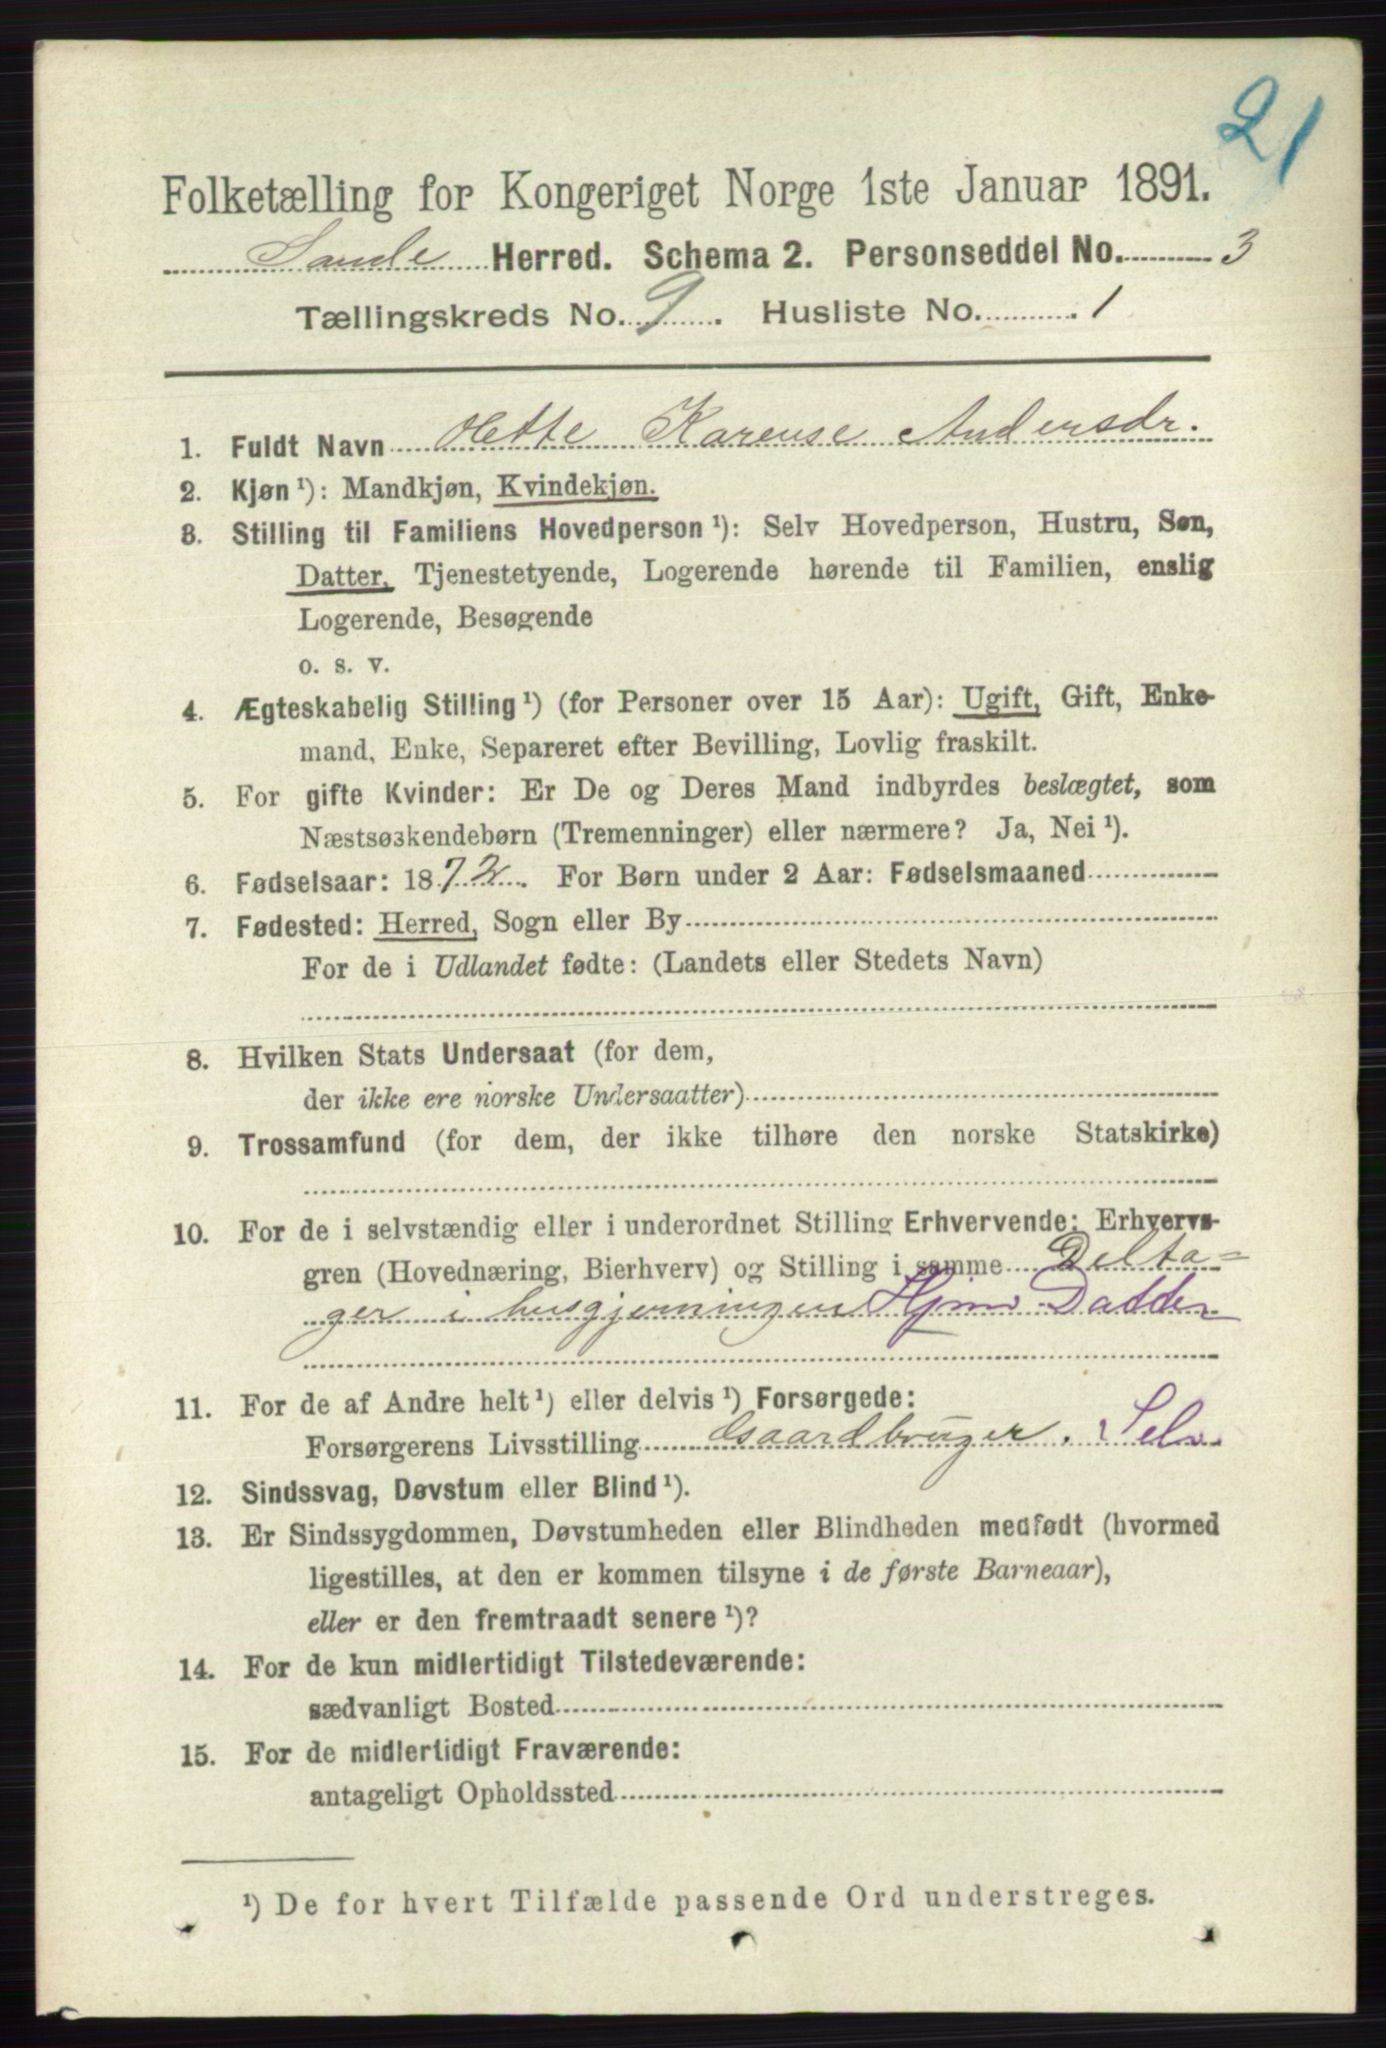 21
Folketælling for Kongeriget Norge 1ste Januar 1891.
Sande Herred. Schema 2. Personseddel No. 3
Tællingskreds No. 9. Husliste No. 1
1. Fuldt Navn Olette Karense Andersdr.
2. Kjøn ¹): Mandkjøn, Kvindekjøn.
3. Stilling til Familiens Hovedperson ¹): Selv Hovedperson, Hustru, Søn,
Datter, Tjenestetyende, Logerende hørende til Familien, enslig
Logerende, Besøgende
o. s. v.
4. Ægteskabelig Stilling ¹) (for Personer over 15 Aar): Ugift, Gift, Enke-
mand, Enke, Separeret efter Bevilling, Lovlig fraskilt.
5. For gifte Kvinder: Er De og Deres Mand indbyrdes beslægtet, som
Næstsøskendebørn (Tremenninger) eller nærmere? Ja, Nei ¹).
6. Fødselsaar: 1872. For Børn under 2 Aar: Fødselsmaaned
7. Fødested: Herred, Sogn eller By
For de i Udlandet fødte: (Landets eller Stedets Navn)
8. Hvilken Stats Undersaat (for dem,
der ikke ere norske Undersaatter)
9. Trossamfund (for dem, der ikke tilhøre den norske Statskirke)
10. For de i selvstændig eller i underordnet Stilling Erhvervende: Erhvervs-
gren (Hovednæring, Bierhverv) og Stilling i samme Delta-
ger i husgjerningen Hjmv. Datter
11. For de af Andre helt ¹) eller delvis ¹) Forsørgede:
Forsørgerens Livsstilling Gaardbruger. Selv
12. Sindssvag, Døvstum eller Blind ¹).
13. Er Sindssygdommen, Døvstumheden eller Blindheden medfødt (hvormed
ligestilles, at den er kommen tilsyne i de første Barneaar),
eller er den fremtraadt senere ¹)?
14. For de kun midlertidigt Tilstedeværende:
sædvanligt Bosted
15. For de midlertidigt Fraværende:
antageligt Opholdssted
¹) De for hvert Tilfælde passende Ord understreges.